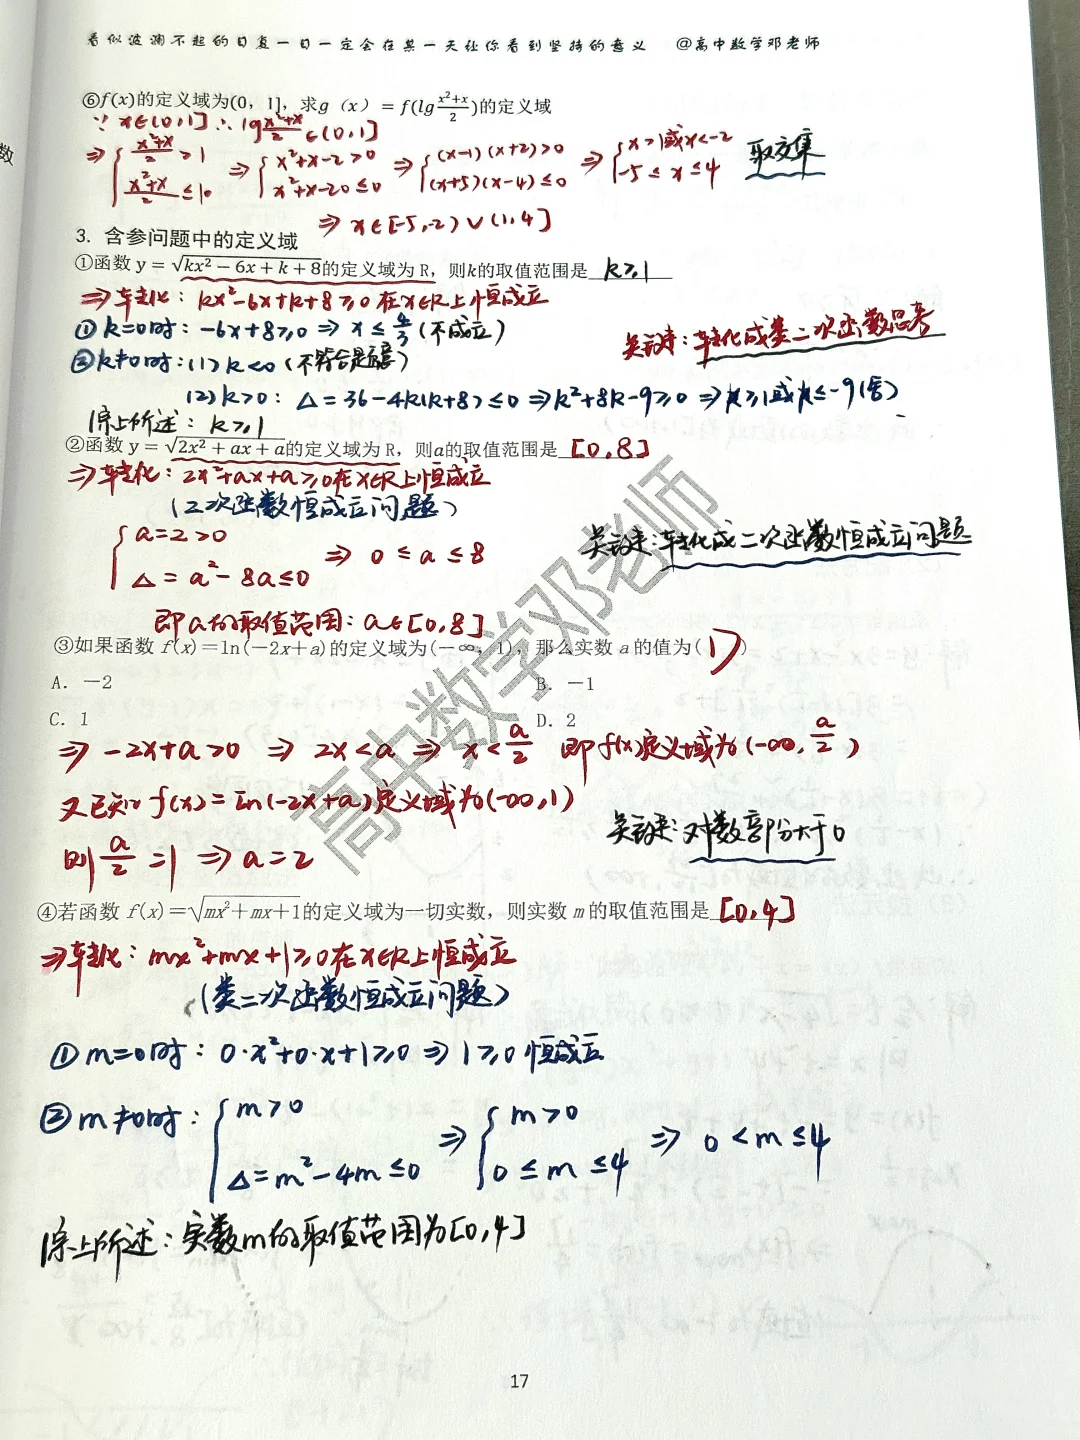 看似波澜不起的日复一日一定会在某一天让你看到坚持的意义 @高中数学邓老师
数
⑥f(x)的定义域为(0，1]，求g（x）= f(lg (x²+x)/2)的定义域
∵ x∈(0,1] ∴ lg (x²+x)/2 ∈(0,1]
⇒ { (x²+x)/2 > 1 ; (x²+x)/2 ≤ 10 ⇒ { x²+x-2>0 ; x²+x-20≤0 ⇒ { (x-1)(x+2)>0 ; (x+5)(x-4)≤0 ⇒ { x>1或x<-2 ; -5≤x≤4 取交集
⇒ x∈[-5,-2)∪(1,4]
3. 含参问题中的定义域
①函数 y = √(kx² − 6x + k + 8)的定义域为 R，则k的取值范围是 k≥1
⇒转化：kx²-6x+k+8≥0在x∈R上恒成立
① k=0时：-6x+8≥0 ⇒ x≤4/3 (不成立)
关键：转化成类二次函数思考
② k≠0时：(1) k<0 (不符合题意)
(2) k>0：△=36-4k(k+8)≤0 ⇒ k²+8k-9≥0 ⇒ k≥1或k≤-9(舍)
综上所述：k≥1
②函数 y = √(2x² + ax + a)的定义域为 R，则a的取值范围是 [0,8]
⇒转化：2x²+ax+a≥0在x∈R上恒成立
(二次函数恒成立问题)
{ a=2>0 ; △=a²-8a≤0 ⇒ 0≤a≤8
关键：转化成二次函数恒成立问题
即a的取值范围：a∈[0,8]
③如果函数 f(x)＝ln(－2x＋a)的定义域为(－∞，1)，那么实数 a 的值为( D )
A. －2 B. －1
C. 1 D. 2
⇒ -2x+a>0 ⇒ 2x<a ⇒ x<a/2 即f(x)定义域为(-∞, a/2)
又已知 f(x)=ln(-2x+a)定义域为(-∞,1)
关键：对数部分大于0
则 a/2 =1 ⇒ a=2
④若函数 f(x)＝√(mx²＋mx＋1)的定义域为一切实数，则实数 m 的取值范围是 [0,4]
⇒转化：mx²+mx+1≥0在x∈R上恒成立
(类二次函数恒成立问题)
① m=0时：0·x²+0·x+1≥0 ⇒ 1≥0 恒成立
② m≠0时：{ m>0 ; △=m²-4m≤0 ⇒ { m>0 ; 0≤m≤4 ⇒ 0<m≤4
综上所述：实数m的取值范围为[0,4]
高中数学邓老师
17